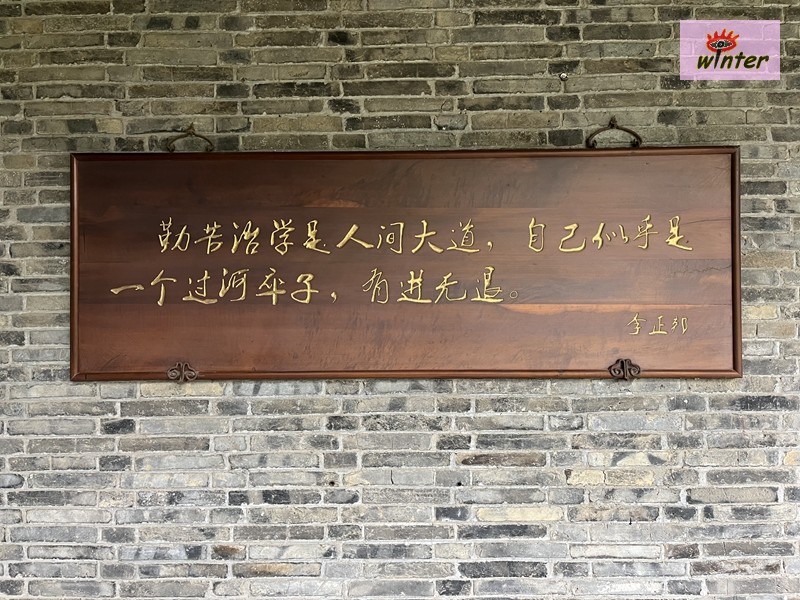 winter
勤苦治学是人间大道，自己似乎是
一个过河卒子，有进无退。
李正邦